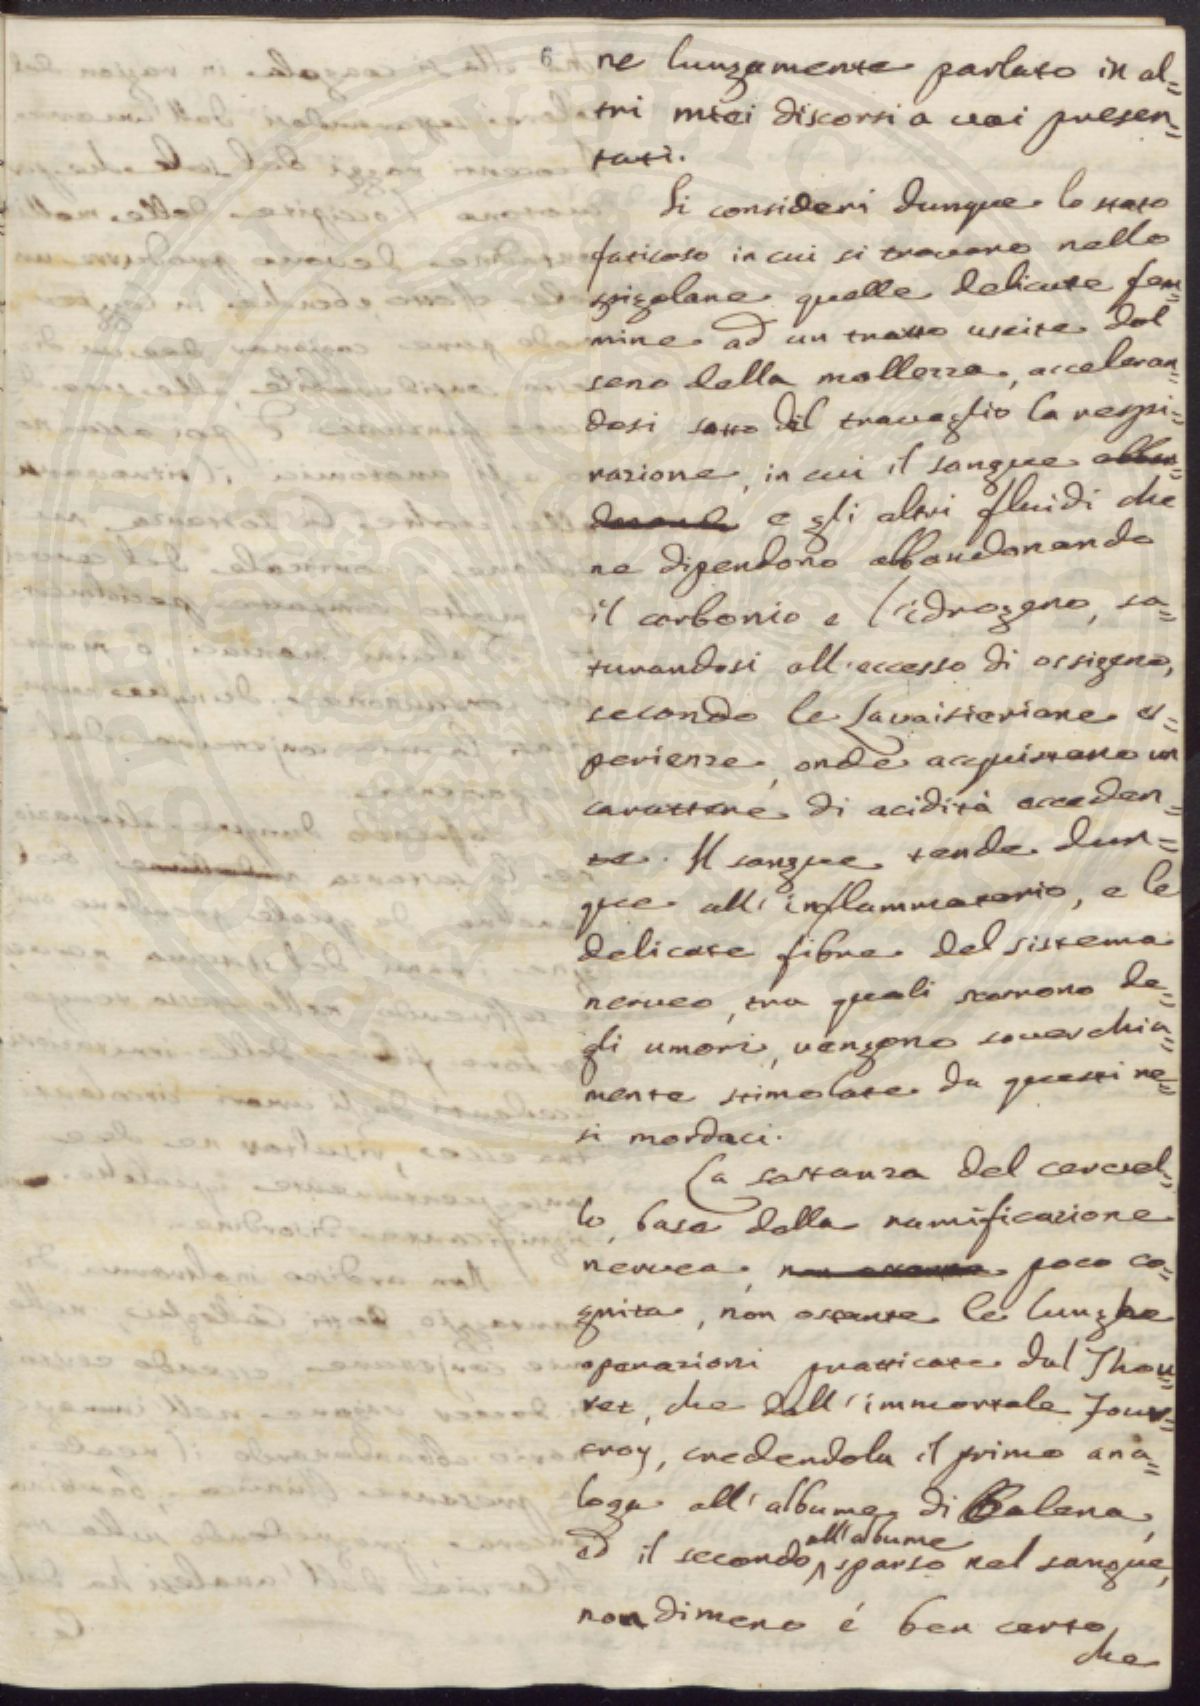 6
ne lungamente parlato in al=
tri miei discorsi a voi presen=
tati.
Si consideri dunque lo stato
faticoso in cui si trovano nello
spigolare quelle delicate fem=
mine ad un tratto uscite dal
seno della mollezza, acceleran=
dosi sotto del travaglio la respi=
razione, in cui il sangue abban=
donando e gli altri fluidi che
ne dipendono abbandonando
il carbonio e l'idrogeno, sa=
turandosi all'eccesso di ossigeno,
secondo le Lavoisieriane es=
perienze, onde acquistano un
carattere di acidità acceden=
te. Il sangue tende dun=
que all'inflammatorio, e le
delicate fibre del sistema
nerveo, tra quali scorrono de=
gli umori, vengono soverchia=
mente stimolate da questi re=
si mordaci.
La sostanza del cervel=
lo, base della ramificazione
nervea, non ostante poco co=
gnita, non ostante le lunghe
operazioni pratticate dal Thou=
ret, che dall'immortale Four=
croy, credendola il primo ana=
loga all'albume di Balena,
ed il secondo all'albume sparso nel sangue,
nondimeno é ben certo
che